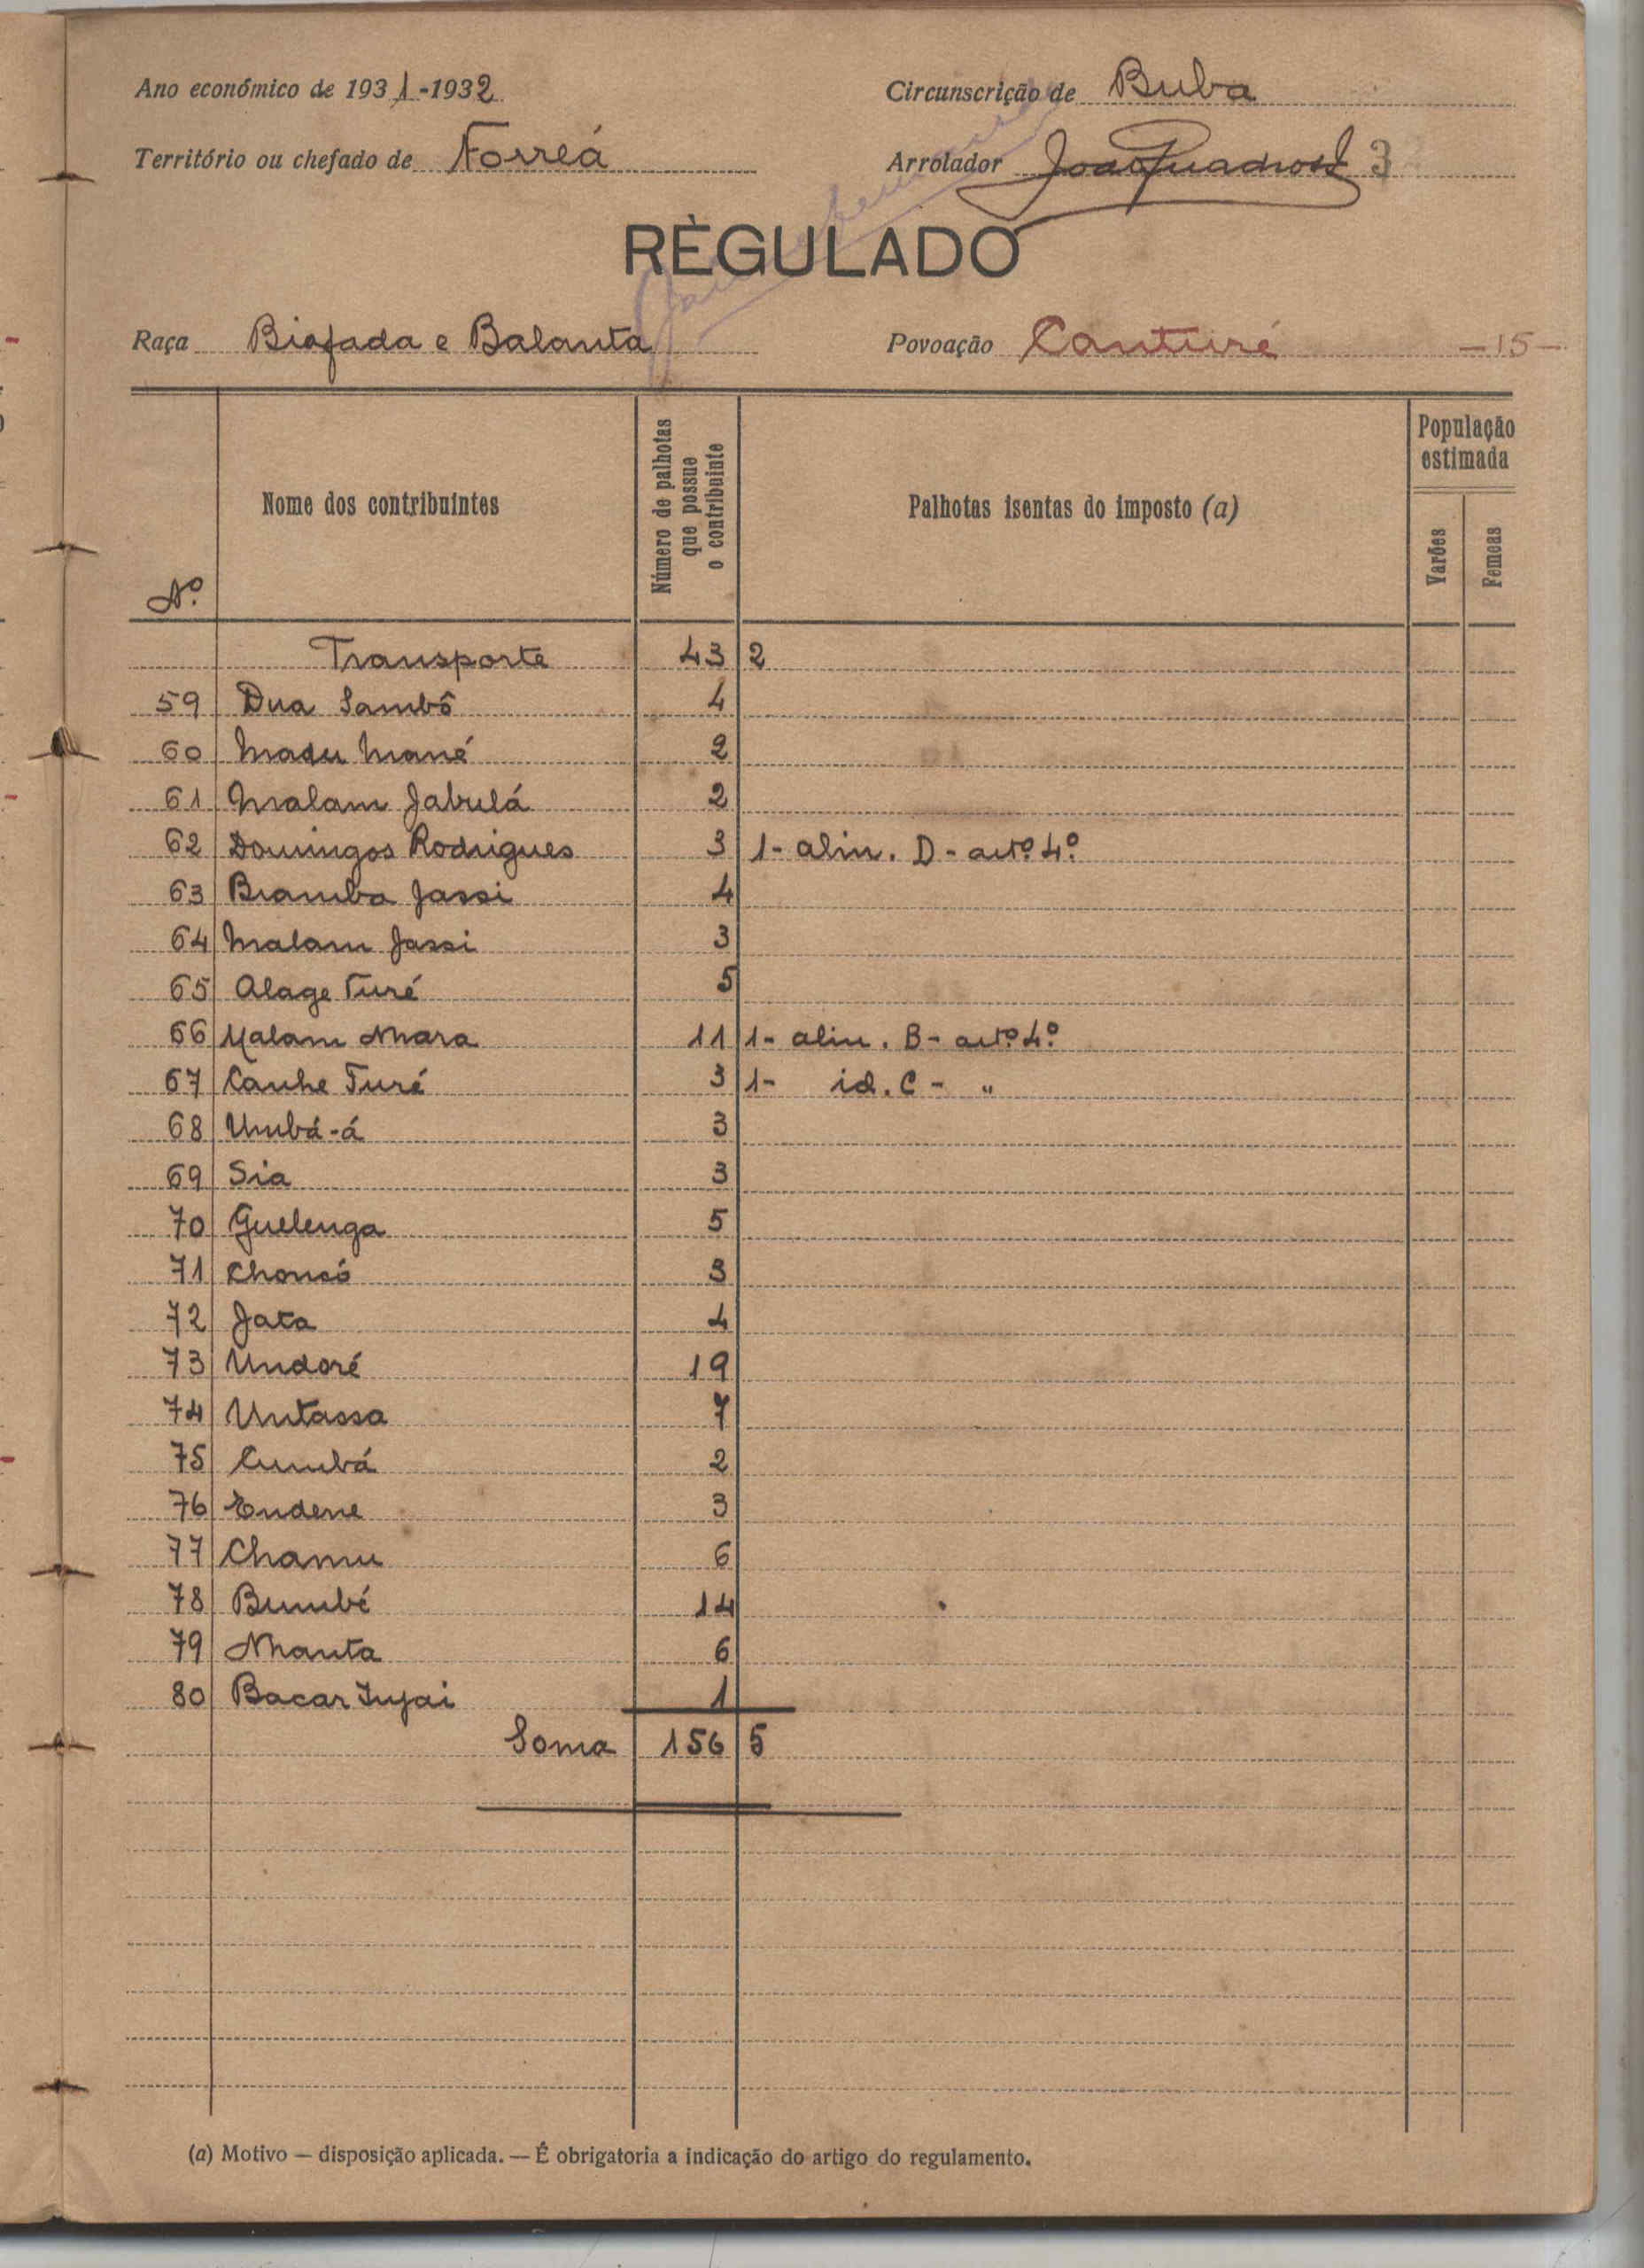 Ano económico de 1931-1932
Circunscrição de Buba
Território ou chefado de Forreá
Arrolador João Quadros 3
RÈGULADO
Raça Biafada e Balanta
Povoação Canturé -15-
Nº
Nome dos contribuintes
Número de palhotas
que possue
o contribuinte
Palhotas isentas do imposto (a)
População
estimada
Varões
Femeas
Transporte 43 2
59 Dua Sambô 4
60 Madu Mané 2
61 Malam Jabulá 2
62 Domingos Rodrigues 3 1- alin. D - artº 4º
63 Bramba Jassi 4
64 Malam Jassi 3
65 Alage Turé 5
66 Malam Nhara 11 1- alin. B - artº 4º
67 Canhe Turé 3 1- id. C - "
68 Umbá-á 3
69 Sia 3
70 Guelenga 5
71 Choncó 3
72 Jata 4
73 Undoré 19
74 Untassa 7
75 Cumbá 2
76 Endene 3
77 Chamu 6
78 Bumbé 14
79 Nhanta 6
80 Bacar Injai 1
Soma 156 5
(a) Motivo — disposição aplicada. — É obrigatoria a indicação do artigo do regulamento.